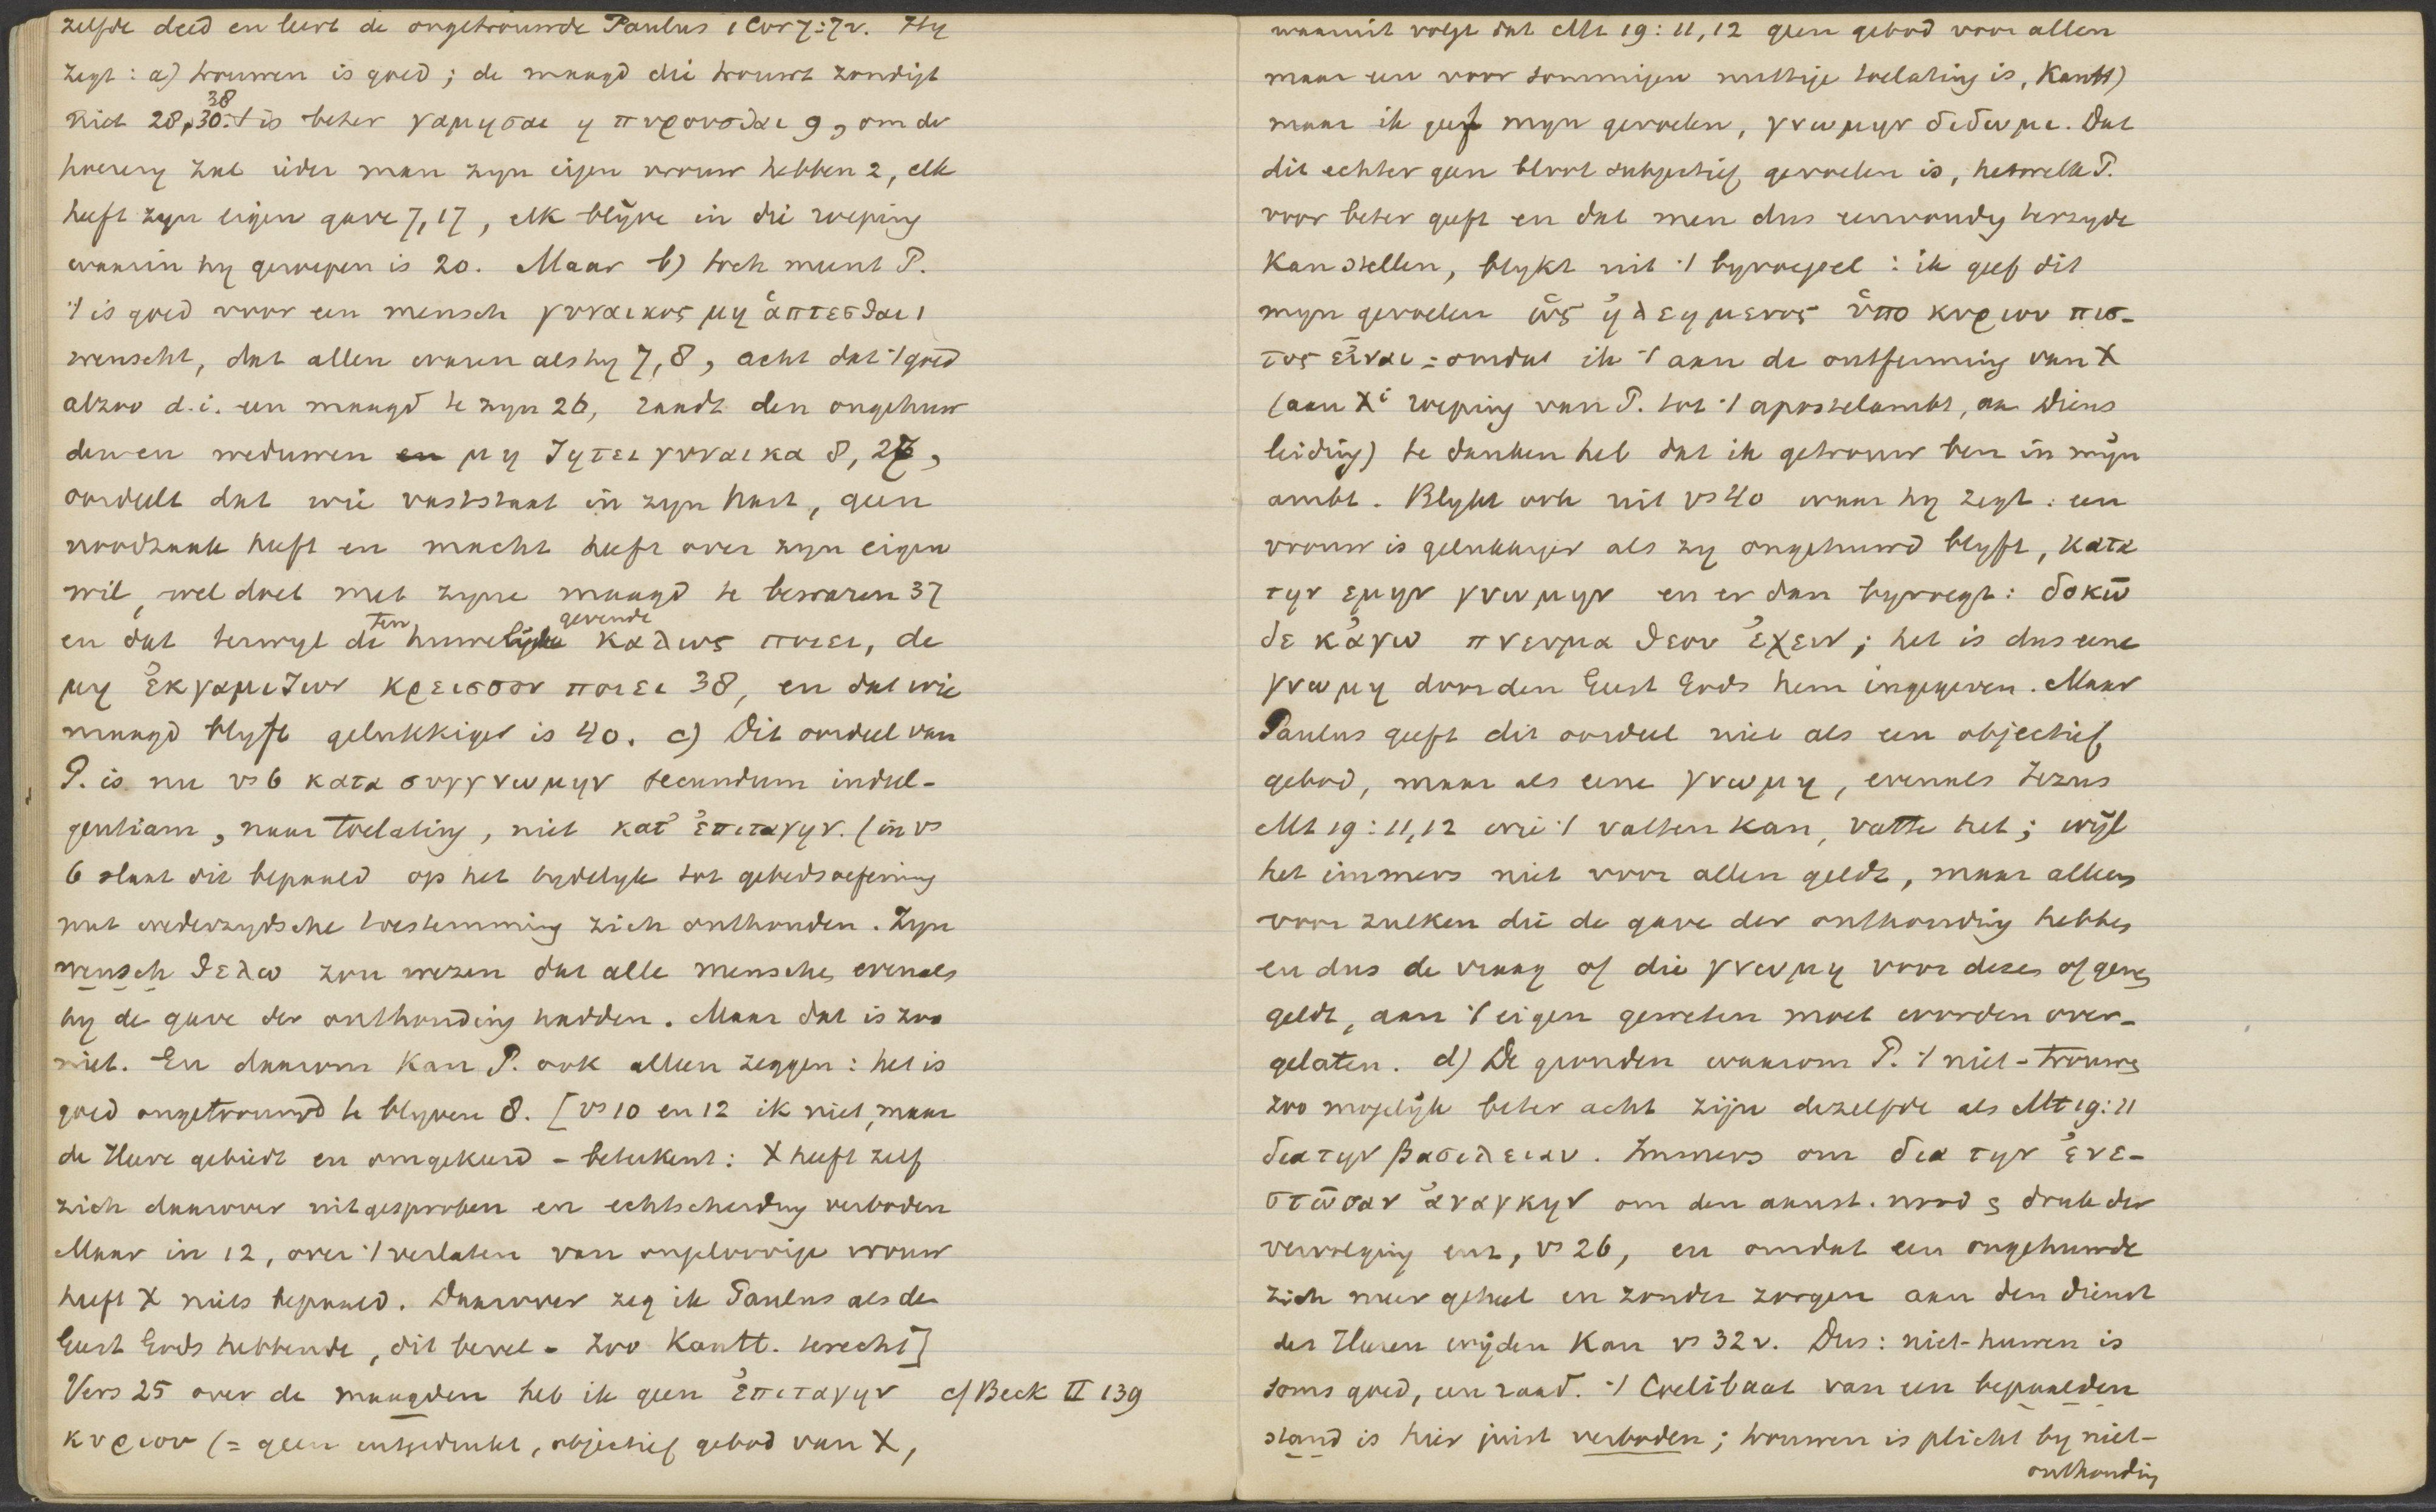 zelfde deed en leert de ongetrouwde Paulus 1 Cor 7:7v. Hy
zegt: a) trouwen is goed; de maagd die trouwt zondigt
niet 28, 30. 't is beter γαμησαι η πυρουσθαι 9, om der
38
hoerery zal ieder man zyn eigen vrouw hebben 2, elk
heeft zyn eigen gave 7, 17, elk blyve in die roeping
waarin hy geroepen is 20. Maar b) toch meent P.
't is goed voor een mensch γυναικος μη ἁπτεσθαι 1
wenscht, dat allen waren als hy 7, 8, acht dat 't goed
alzoo d.i. een maagd te zyn 26, raadt den ongehuw
den en weduwen en μη ζητει γυναικα 8, 27,
oordeelt dat wie vaststaat in zyn hart, geen
noodzaak heeft en macht heeft over zyn eigen
wil, wel doet met zyne maagd te bewaren 37
en dat terwyl de ten huwelijke gevende καλως ποιει, de
μη ἐκγαμιζων κρεισσον ποιει 38, en dat wie
maagd blyft gelukkiger is 40. c) Dit oordeel van
P. is nu vs 6 κατα συγγνωμην secundum indul-
gentiam, naar toelating, niet κατ' ἐπιταγην. (in vs
6 slaat dit bepaald op het tydelyk tot gebedsoefening
met wederzydsche toestemming zich onthouden. Zyn
wensch θελω zou wezen dat alle menschen evenals
hy de gave der onthouding hadden. Maar dat is zoo
niet. En daarom kan P. ook alleen zeggen: het is
goed ongetrouwd te blyven 8. [vs 10 en 12 ik niet, maar
de Heere gebiedt en omgekeerd - beteekent: X heeft zelf
zich daarover uitgesproken en echtscheiding verboden
Maar in 12, over 't verlaten van ongeloovige vrouw
heeft X niets bepaald. Daarover zeg ik Paulus als de
Geest Gods hebbende, dit bevel - Zoo Kantt. terecht]
Vers 25 over de maagden heb ik geen ἐπιταγην cf Beck II 139
κυριου (= geen uitgedrukt, objectief gebod van X,
waaruit volgt dat Mt 19:11,12 geen gebod voor allen
maar een voor sommigen nuttige toelating is, Kantt)
maar ik geef myn gevoelen, γνωμην διδωμι. Dat
dit echter geen bloot subjectief gevoelen is, hetwelk P.
voor beter geeft en dat men dus eenvoudig terzyde
kan stellen, blykt uit 't byvoegsel: ik geef dit
myn gevoelen ὡς ἠλεημενος ὑπο κυριου πισ-
τος εἰναι = omdat ik 't aan de ontferming van X
(aan Xi roeping van P. tot 't apostelambt, aan Diens
leiding) te danken heb dat ik getrouw ben in myn
ambt. Blykt ook uit vs 40 waar hy zegt: een
vrouw is gelukkiger als zy ongehuwd blyft, κατα
την εμην γνωμην en er dan byvoegt: δοκω
δε κἀγω πνευμα θεου ἐχειν; het is dus eene
γνωμη door den Geest Gods hem ingegeven. Maar
Paulus geeft dit oordeel niet als een objectief
gebod, maar als eene γνωμη, evenals Jezus
Mt 19:11,12 wie 't vatten kan, vatte het; wijl
het immers niet voor allen geldt, maar alleen
voor zulken die de gave der onthouding hebben
en dus de vraag of die γνωμη voor dezen of genen
geldt, aan 't eigen geweten moet worden over-
gelaten. d) De gronden waarom P. 't niet-trouwen
zoo mogelijk beter acht zijn dezelfde als Mt 19:11
δια την βασιλειαν. Immers om δια την ἐνε-
στωσαν ἀναγκην om den aanst. nood, druk der
vervolging enz, vs 26, en omdat een ongehuwde
zich meer geheel en zonder zorgen aan den dienst
des Heeren wijden kan vs 32v. Dus: niet-huwen is
soms goed, een raad. 't Coelibaat van een bepaalden
stand is hier juist verboden; trouwen is plicht by niet-
onthouding